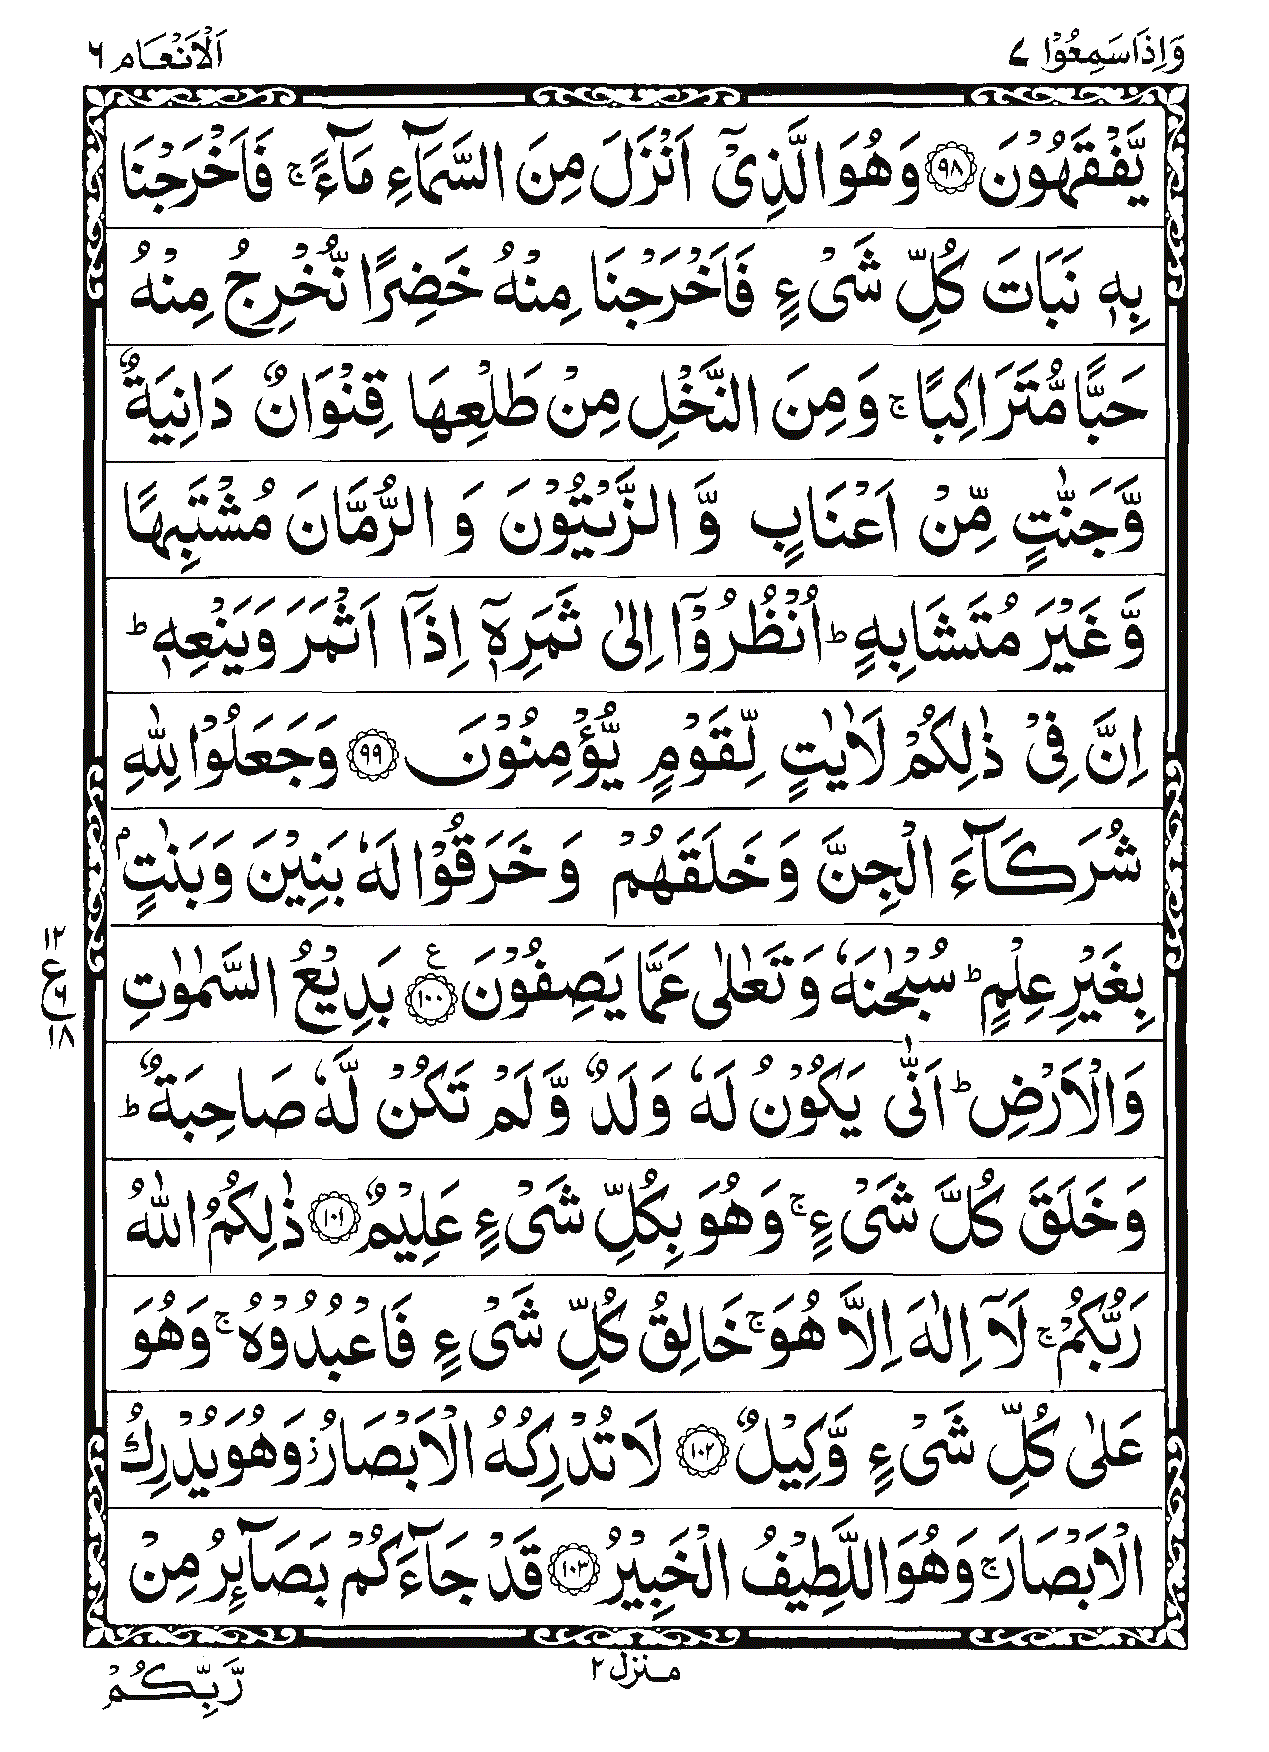 وَاِذَا سَمِعُوْا ٧
اَلْاَنْعَام ٦
يَّفْقَهُوْنَ ﴿٩٨﴾ وَهُوَ الَّذِىْۤ اَنْزَلَ مِنَ السَّمَآءِ مَآءً ۚ فَاَخْرَجْنَا
بِهٖ نَبَاتَ كُلِّ شَىْءٍ فَاَخْرَجْنَا مِنْهُ خَضِرًا نُّخْرِجُ مِنْهُ
حَبًّا مُّتَرَاكِبًا ۚ وَمِنَ النَّخْلِ مِنْ طَلْعِهَا قِنْوَانٌ دَانِيَةٌ
وَّجَنّٰتٍ مِّنْ اَعْنَابٍ وَّ الزَّيْتُوْنَ وَ الرُّمَّانَ مُشْتَبِهًا
وَّغَيْرَ مُتَشَابِهٍ ؕ اُنْظُرُوْۤا اِلٰى ثَمَرِهٖۤ اِذَاۤ اَثْمَرَ وَيَنْعِهٖ ؕ
اِنَّ فِىْ ذٰلِكُمْ لَاٰيٰتٍ لِّقَوْمٍ يُّؤْمِنُوْنَ ﴿٩٩﴾ وَجَعَلُوْا لِلّٰهِ
شُرَكَآءَ الْجِنَّ وَخَلَقَهُمْ وَ خَرَقُوْا لَهٗ بَنِيْنَ وَبَنٰتٍۭ
بِغَيْرِ عِلْمٍ ؕ سُبْحٰنَهٗ وَتَعٰلٰى عَمَّا يَصِفُوْنَ ﴿١٠٠﴾ ع بَدِيْعُ السَّمٰوٰتِ
١٢
ع
٦
١٨
وَالْاَرْضِ ؕ اَنّٰى يَكُوْنُ لَهٗ وَلَدٌ وَّلَمْ تَكُنْ لَّهٗ صَاحِبَةٌ ؕ
وَخَلَقَ كُلَّ شَىْءٍ ۚ وَهُوَ بِكُلِّ شَىْءٍ عَلِيْمٌ ﴿١٠١﴾ ذٰلِكُمُ اللّٰهُ
رَبُّكُمْ ۚ لَاۤ اِلٰهَ اِلَّا هُوَ ۚ خَالِقُ كُلِّ شَىْءٍ فَاعْبُدُوْهُ ۚ وَهُوَ
عَلٰى كُلِّ شَىْءٍ وَّكِيْلٌ ﴿١٠٢﴾ لَا تُدْرِكُهُ الْاَبْصَارُ ز وَهُوَ يُدْرِكُ
الْاَبْصَارَ ۚ وَهُوَ اللَّطِيْفُ الْخَبِيْرُ ﴿١٠٣﴾ قَدْ جَآءَكُمْ بَصَآئِرُ مِنْ
منزل ٢
رَّبِّكُمْ